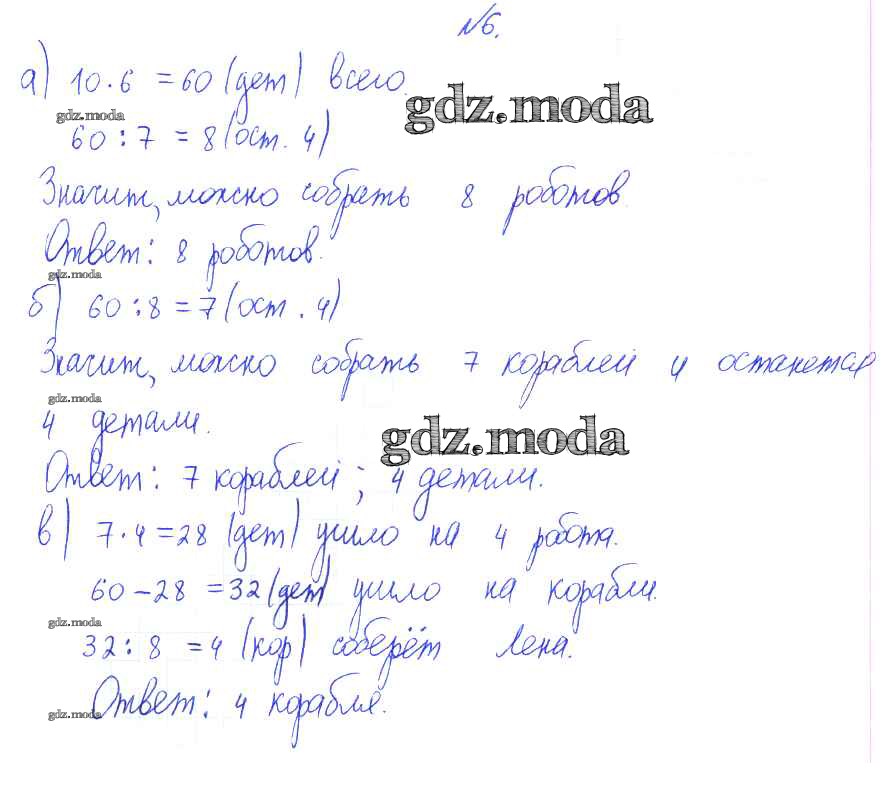 №6.
а) 10·6 = 60 (дет) всего.
gdz.moda
gdz.moda
60 : 7 = 8 (ост. 4)
Значит, можно собрать 8 роботов.
Ответ: 8 роботов.
gdz.moda
б) 60 : 8 = 7 (ост. 4)
Значит, можно собрать 7 кораблей и останется
gdz.moda
4 детали.
gdz.moda
Ответ: 7 кораблей; 4 детали.
в) 7·4 = 28 (дет) ушло на 4 робота.
60 - 28 = 32 (дет) ушло на корабли.
gdz.moda
32 : 8 = 4 (кор) соберёт Лена.
Ответ: 4 корабля.
gdz.moda